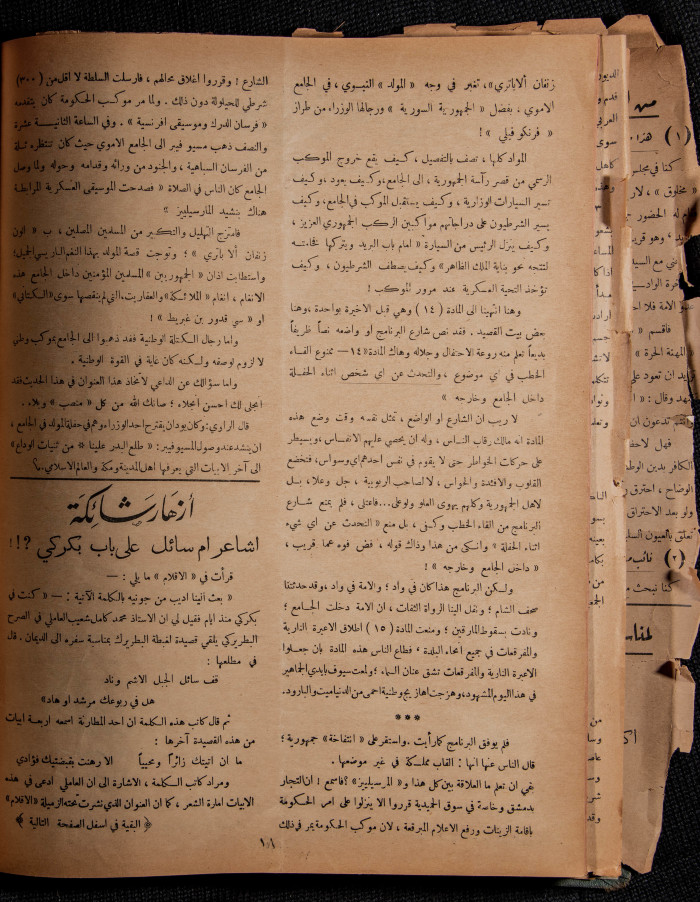 زنفان ألاباتري»، تغير في وجه «المولد» النبوي، في الجامع
الاموي، بفضل «الجمهورية السورية» ورجالها الوزراء من طراز
« فرنكو فيلي »!
المواد كلها، تصف بالتفصيل، كيف يقع خروج الموكب
الرسمي من قصر رآسة الجمهورية، الى الجامع، وكيف يعود، وكيف
تسير السيارات الوزارية، وكيف يستقبل الموكب في الجامع، وكيف
يسير الشرطيون على دراجاتهم مواكبين الركب الجمهوري العزيز،
وكيف ينزل الرئيس من السيارة «امام باب البريد ويتركها فخامته
لتتجه نحو بناية الملك الظاهر» وكيف يصطف الشرطيون، وكيف
تؤخذ التحية العسكرية عند مرور الموكب!
وهنا انتهينا الى المادة (١٤) وهي قبل الاخيرة بواحدة، وهنا
محض بيت القصيد. فقد نص شارع البرنامج أو واضعه نصاً ظريفاً
بديعاً تعلم منه روعة الاحتفال وجلاله وهاك المادة «١٤— ممنوع القاء
الخطب في اي موضوع، والتحدث عن اي شخص اثناء الحفلة
داخل الجامع وخارجه »
لا ريب ان الشارع او الواضع، تمثل نفسه وقت وضع هذه
المادة انه مالك رقاب الناس، وله ان يحصي عليهم الانفاس، ويسيطر
على حركات الخواطر حتى لا يقوم في نفس احدهم اي وسواس، فتخضع
القلوب والافئدة والحواس، لا لصاحب الربوبية، جل وعلا، بل
لاهل الجمهورية وكلهم يهوى العلو ولو على... فاعتلى، فلم يمنع شارع
البرنامج من القاء الخطب وكفى، بل منع «التحدث عن اي شيء
اثناء الحفلة » وانكى من هذا وذاك قوله، فض فوه عما قريب،
« داخل الجامع وخارجه »!
ولكن البرنامج هذا كان في واد، والامة في واد، وقد حدثتنا
صحف الشام؛ ونقل الينا الرواة الثقات، ان الامة دخلت الجامع؛
ونادت بسقوط المارقين؛ ومنعت المادة (١٥) اطلاق الاعيرة النارية
والمفرقعات في جميع انحاء البلدة، فطاع الناس هذه المادة بان جعلوا
الاعيرة النارية والمفرقعات تشق عنان السماء؛ ولمعت سيوف بايدي الجماهير
في هذا اليوم المشهود، وهزجت اهازيج وطنية احمى من الديناميت والبارود.
***
فلم يوفق البرنامج كما رأيت. واستقر على «انتفاخة» جمهورية؛
قال الناس عنها انها: القاب مملكة في غير موضعها.
بقي ان تعلم ما العلاقة بين كل هذا و«المرسيلييز» ؟ فاسمع: ان التجار
بدمشق وخاصة في سوق الحميدية قرروا الا ينزلوا على امر الحكومة
باقامة الزينات ورفع الاعلام المبرقعة، لان موكب الحكومة يمر في ذلك
الشارع! وقرروا اغلاق محالهم، فارسلت السلطة لا اقل من (٣٠٠)
شرطي للحيلولة دون ذلك. ولما مر موكب الحكومة كان يتقدمه
« فرسان الدرك وموسيقى افرنسية ». وفي الساعة الثانية عشرة
والنصف ذهب مسيو فيبر الى الجامع الاموي حيث كان تنتظره ثلة
من الفرسان السباهية، والجنود من ورائه وقدامه وحوله ولما وصل
الجامع كان الناس في الصلاة «فصدحت الموسيقى العسكرية المرابطة
هناك بنشيد المارسيلييز »
فامتزج التهليل والتكبير من المسلمين المصلين، ب « الون
زنفان ألا باتري »؛ وتوجت قصة المولد بهذا النغم الباريسي الجميل!
واستطابت اذان «الجمهوريين» المسلمين المؤمنين داخل الجامع هذه
الانغام، انغام «الملائكة» والعفاريت، التي لم ينقصها سوى «الكتاني»
او « سي قدور بن غبريط »!
واما رجال الكتلة الوطنية فقد ذهبوا الى الجامع بموكب وطني
لا لزوم لوصفه ولكنه كان غاية في القوة الوطنية.
واما سؤالك عن الداعي لاتخاذ هذا العنوان في هذا الحديث فقد
انجلى لك احسن انجلاء؛ صانك الله من كل «منصب» وبلاء.
قال الراوي: وكان بودان يقترح احد الوزراء وهم في حفلة المولد في الجامع،
ان ينشد عند وصول المسيو فيبر: « طلع البدر علينا * من ثنيات الوداع»
الى آخر الابيات التي يعرفها اهل المدينة ومكة والعالم الاسلامي.
أزهار شائكة
اشاعر ام سائل على باب بكركي ؟!!
قرأت في « الاقلام » ما يلي : —
« بعث الينا اديب من جونيه بالكلمة الآتية: — «كنت في
بكركي منذ ايام فقيل لي ان الاستاذ محمد كامل شعيب العاملي في الصرح
البطريركي يلقي قصيدة لغبطة البطريرك بمناسبة سفره الى الديمان. قال
في مطلعها :
قف سائل الجبل الاشم وناد
هل في ربوعك مرشد او هاد»
ثم قال كاتب هذه الكلمة ان احد المطارنة اسمعه اربعة ابيات
من هذه القصيدة آخرها :
ما ان اتيتك زائراً ومحيياً الا رهنت بقبضتيك فؤادي
ومراد كاتب الكلمة، الاشارة الى ان العاملي ادعى في هذه
الابيات امارة الشعر، كما ان العنوان الذي نشرت تحته الزميلة «الاقلام»
﴿ البقية في اسفل الصفحة التالية ﴾
١٨